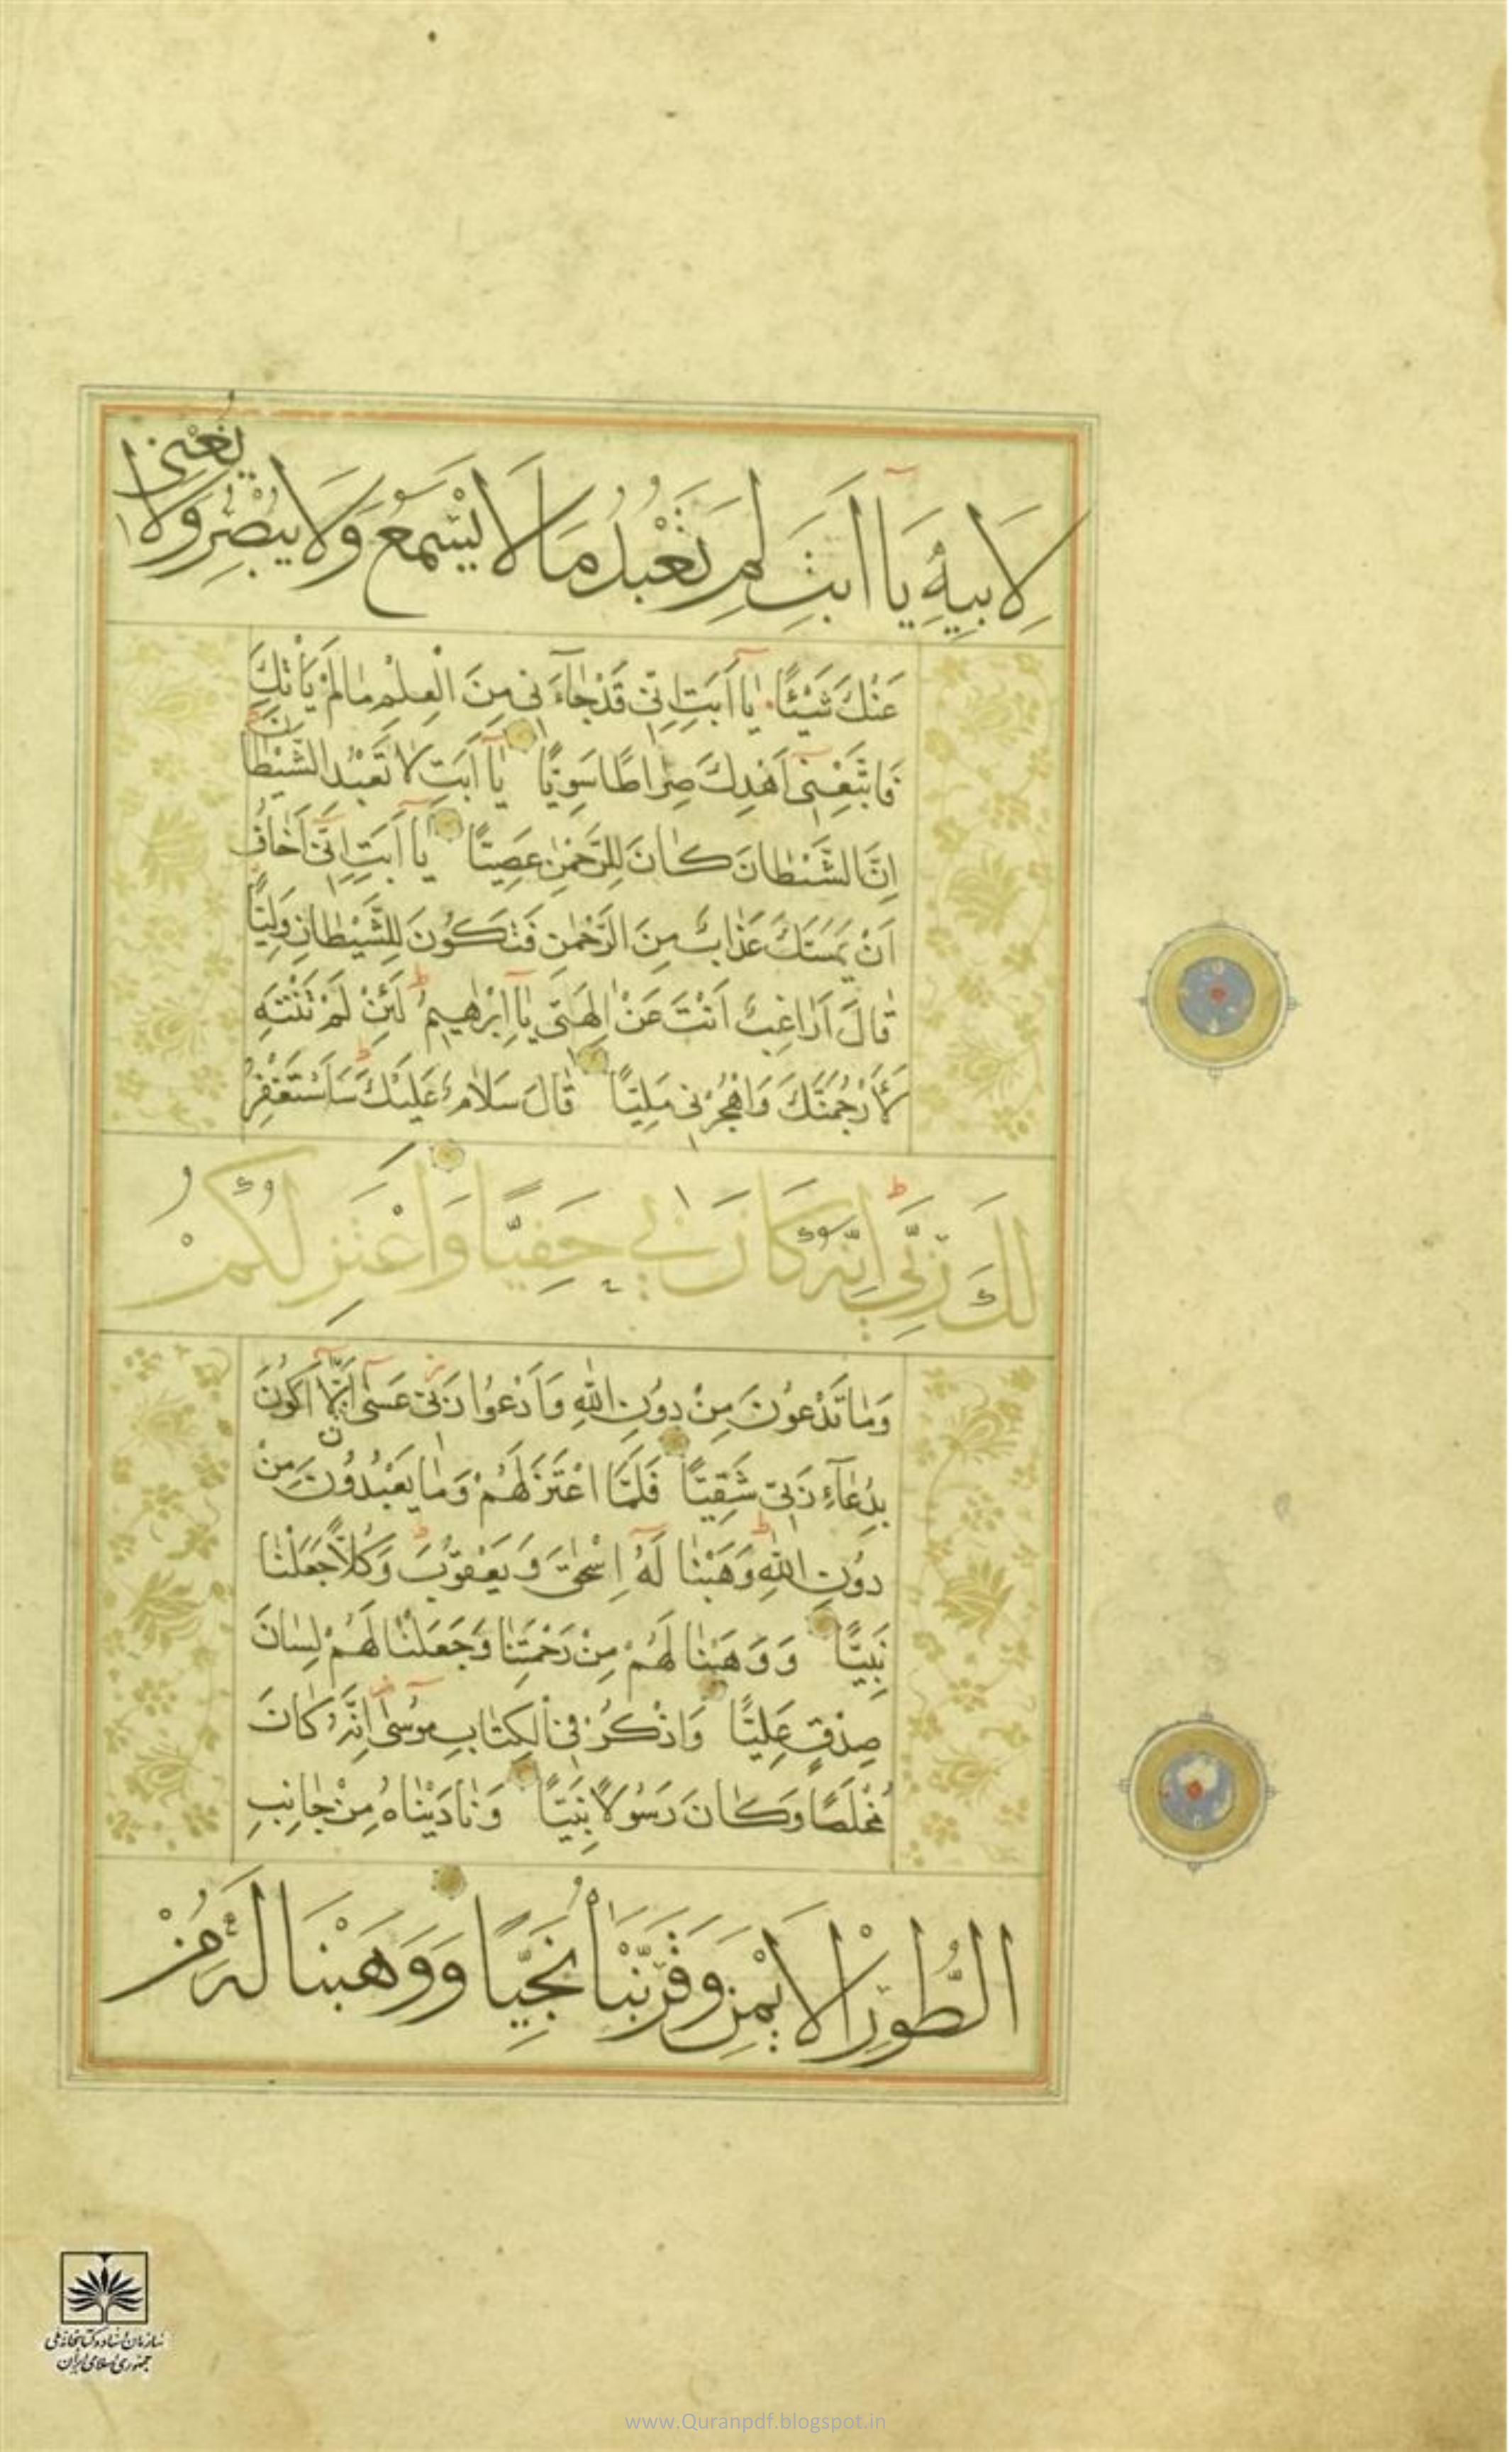 لِاَبِيهِ يَآ اَبَتِ لِمَ تَعْبُدُ مَا لَا يَسْمَعُ وَلَا يُبْصِرُ وَلَا يُغْنِى
عَنْكَ شَيْئًا يَآ اَبَتِ اِنِّى قَدْ جَآءَنِى مِنَ الْعِلْمِ مَا لَمْ يَاْتِكَ
فَاتَّبِعْنِىٓ اَهْدِكَ صِرَاطًا سَوِيًّا يَآ اَبَتِ لَا تَعْبُدِ الشَّيْطَانَ
اِنَّ الشَّيْطَانَ كَانَ لِلرَّحْمٰنِ عَصِيًّا يَآ اَبَتِ اِنِّىٓ اَخَافُ
اَنْ يَمَسَّكَ عَذَابٌ مِنَ الرَّحْمٰنِ فَتَكُونَ لِلشَّيْطَانِ وَلِيًّا
قَالَ اَرَاغِبٌ اَنْتَ عَنْ اٰلِهَتِى يَآ اِبْرٰهِيمُ لَئِنْ لَمْ تَنْتَهِ
لَاَرْجُمَنَّكَ وَاهْجُرْنِى مَلِيًّا قَالَ سَلَامٌ عَلَيْكَ سَاَسْتَغْفِرُ
لَكَ رَبِّىٓ اِنَّهُ كَانَ بِى حَفِيًّا وَاَعْتَزِلُكُمْ
وَمَا تَدْعُونَ مِنْ دُونِ اللّٰهِ وَاَدْعُوا رَبِّى عَسٰىٓ اَلَّآ اَكُونَ
بِدُعَآءِ رَبِّى شَقِيًّا فَلَمَّا اعْتَزَلَهُمْ وَمَا يَعْبُدُونَ مِنْ
دُونِ اللّٰهِ وَهَبْنَا لَهُٓ اِسْحٰقَ وَيَعْقُوبَ وَكُلًّا جَعَلْنَا
نَبِيًّا وَوَهَبْنَا لَهُمْ مِنْ رَحْمَتِنَا وَجَعَلْنَا لَهُمْ لِسَانَ
صِدْقٍ عَلِيًّا وَاذْكُرْ فِى الْكِتَابِ مُوسٰىٓ اِنَّهُ كَانَ
مُخْلَصًا وَكَانَ رَسُولًا نَبِيًّا وَنَادَيْنَاهُ مِنْ جَانِبِ
الطُّورِ الْاَيْمَنِ وَقَرَّبْنَاهُ نَجِيًّا وَوَهَبْنَا لَهُ مِنْ
سازمان اسناد و کتابخانه ملی
جمهوری اسلامی ایران
www.Quranpdf.blogspot.in